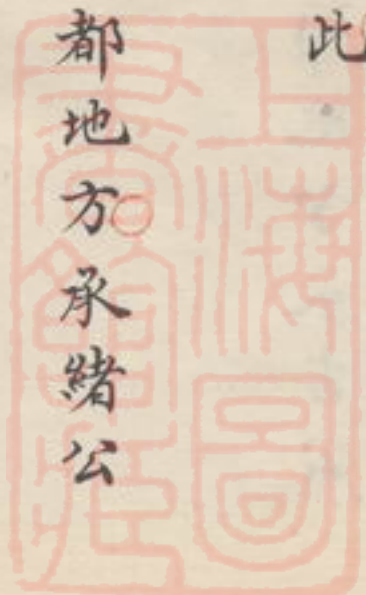 此
都地方承緒公
上海圖
書館藏